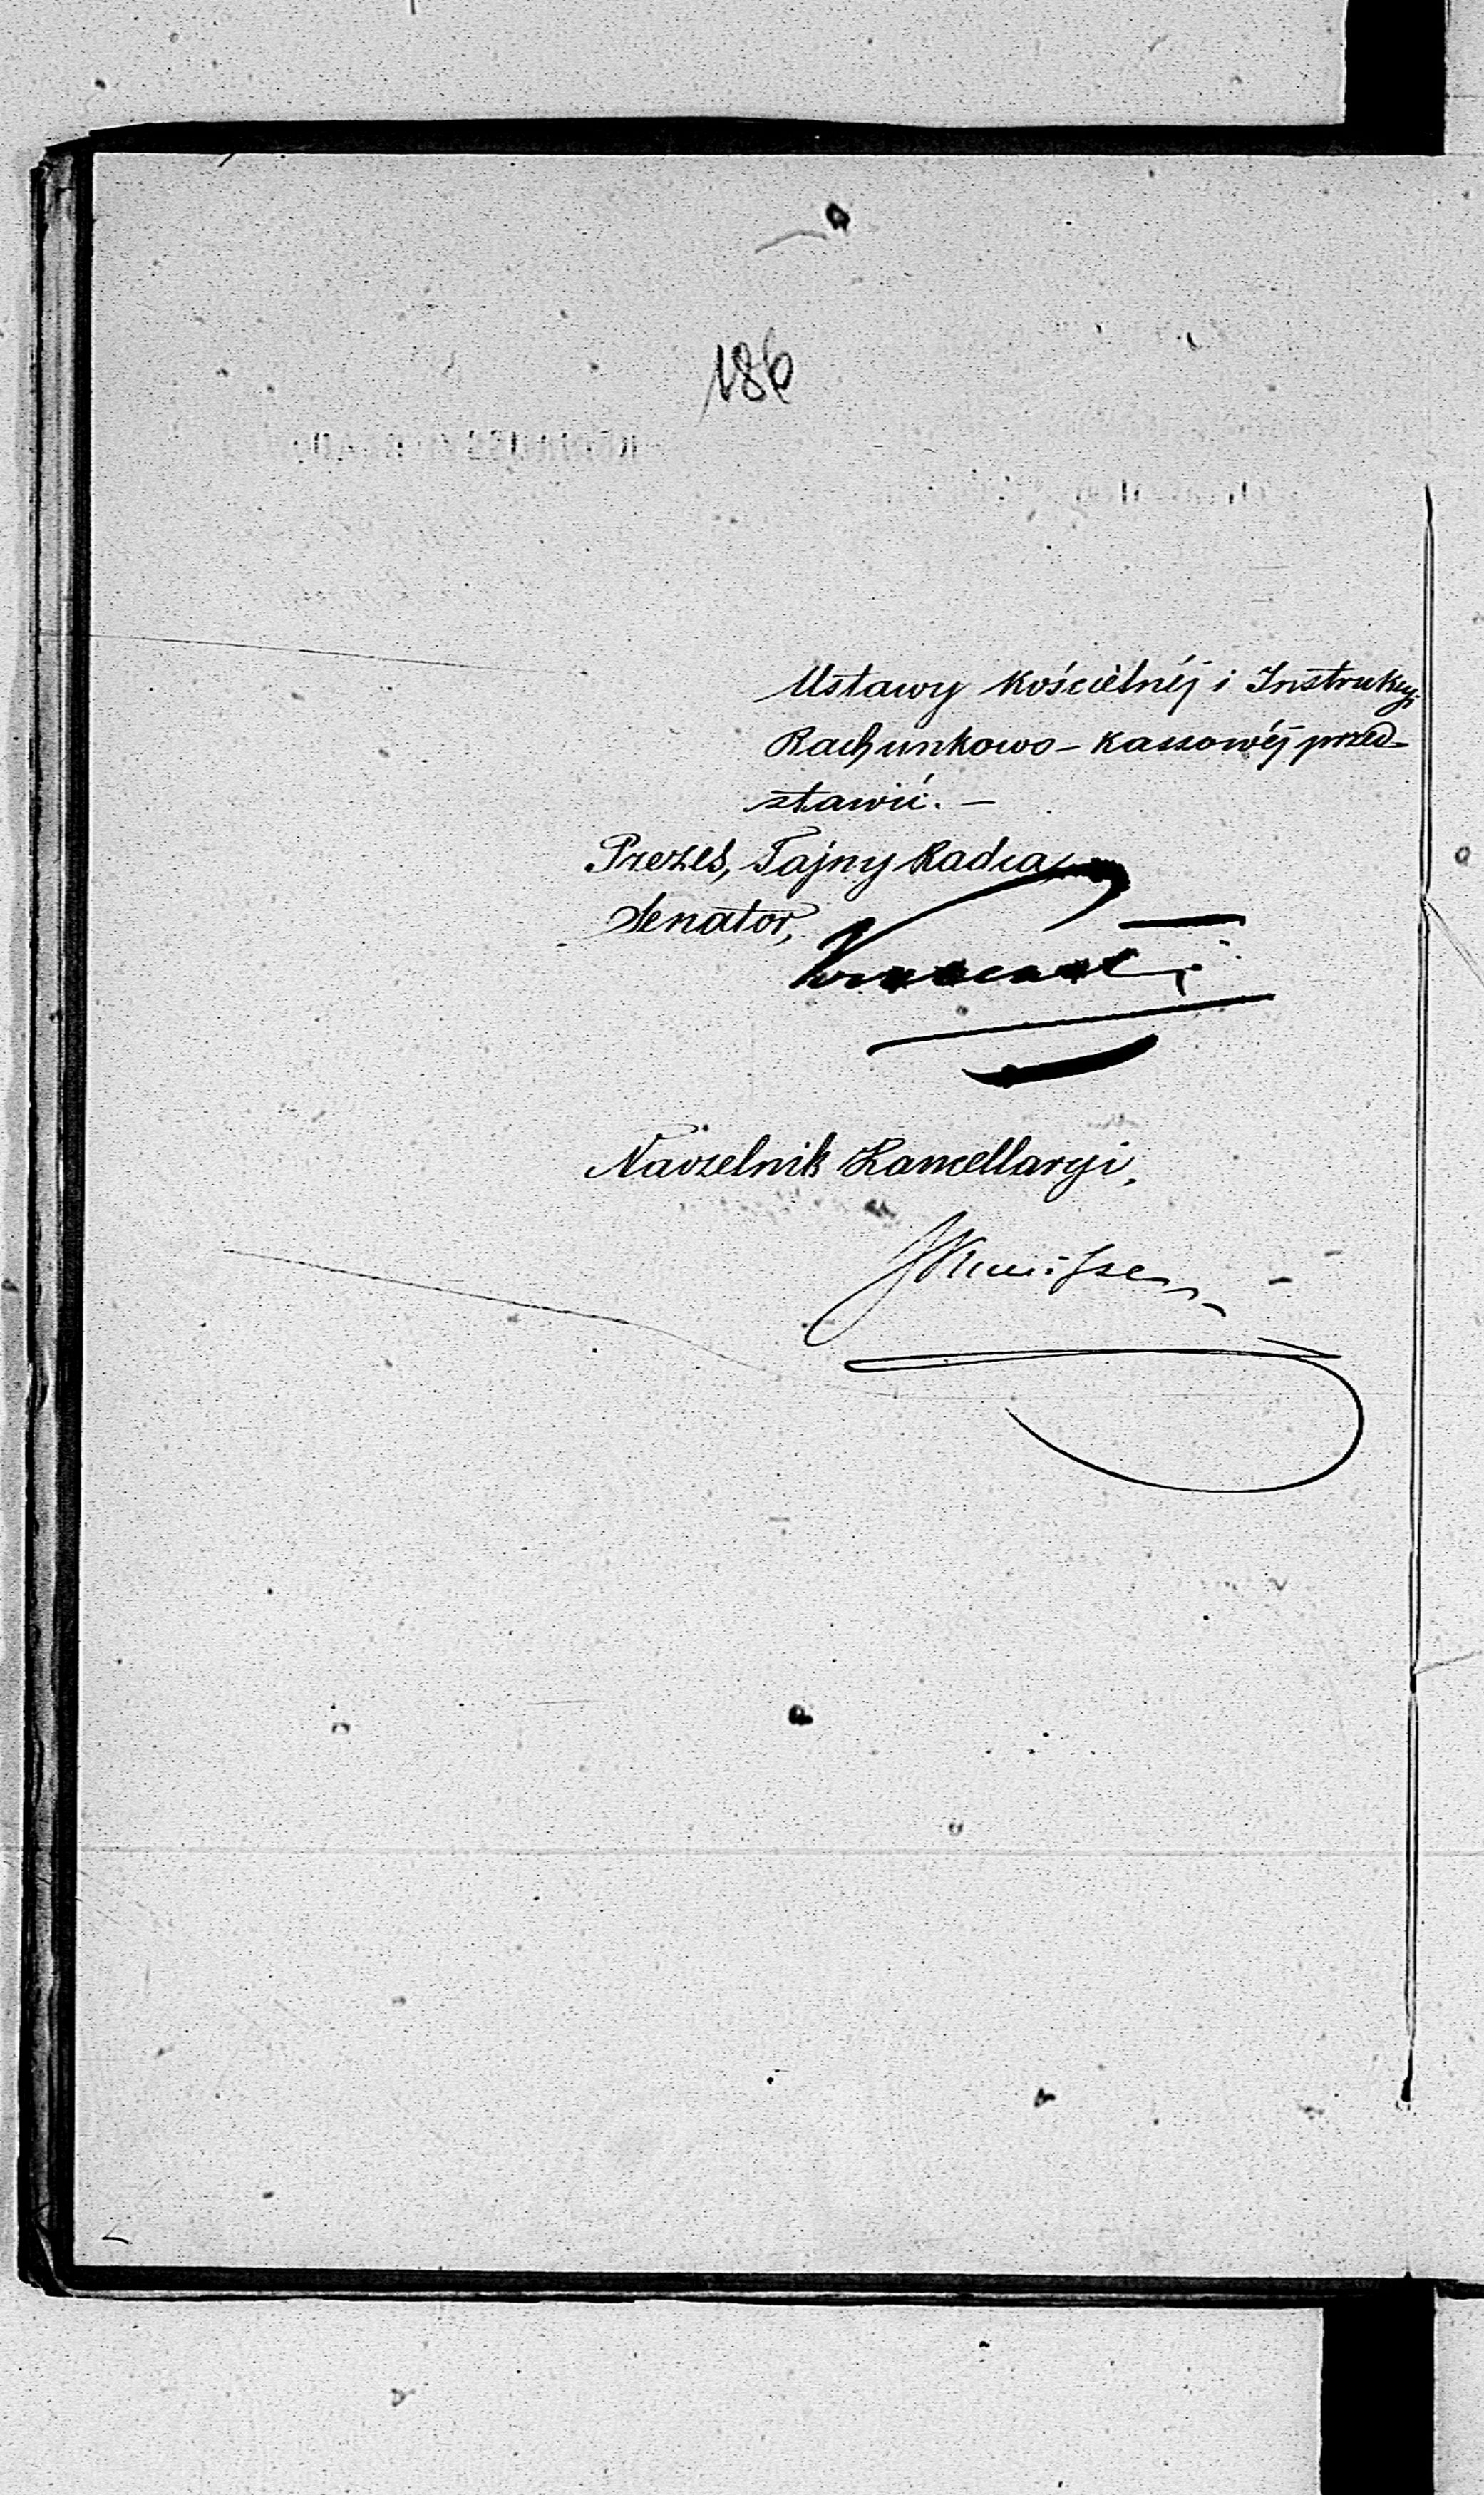 186
Ustawy kościelnéj i Instrukcyi
Rachunkowo-kassowéj przed-
stawić. —
Prezes, Tajny Radca,
Senator,
Naczelnik Kancellaryi,